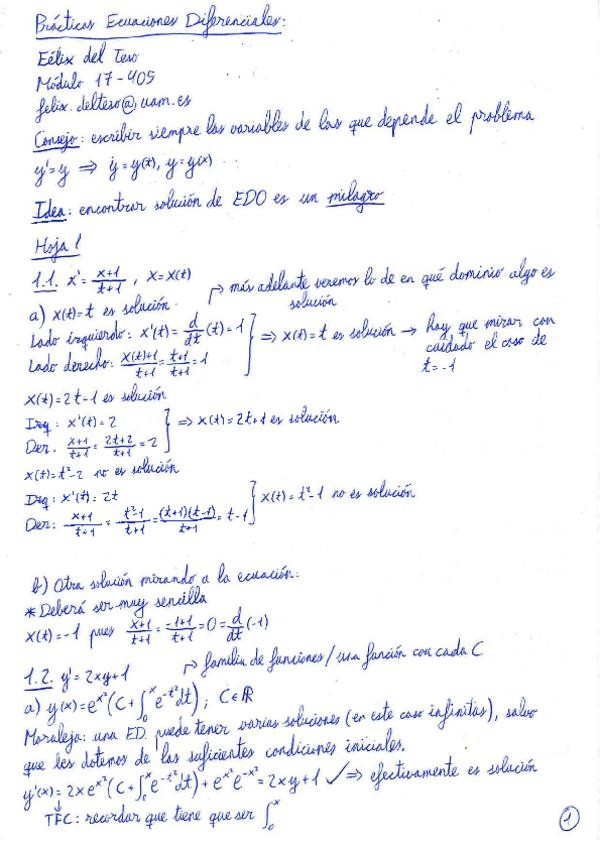 Prácticas Ecuaciones Diferenciales:
Félix del Teso
Módulo 17-405
felix.delteso@uam.es
Consejo: escribir siempre las variables de las que depende el problema
y'=y ⇒ y=y(t), y=y(x)
Idea: encontrar solución de EDO es un milagro
Hoja 1
1.1. x' = (x+1)/(t+1), x=x(t)
a) x(t)=t es solución. → más adelante veremos lo de en qué dominio algo es solución
Lado izquierdo: x'(t) = d/dt (t) = 1
Lado derecho: (x(t)+1)/(t+1) = (t+1)/(t+1) = 1 } ⇒ x(t)=t es solución → Hay que mirar con cuidado el caso de t=-1
x(t)=2t+1 es solución
Izq: x'(t)=2
Der. (x+1)/(t+1) = (2t+2)/(t+1) = 2 } ⇒ x(t)=2t+1 es solución
x(t)=t²-2 no es solución
Izq: x'(t)=2t
Der: (x+1)/(t+1) = (t²-1)/(t+1) = ((t+1)(t-1))/(t+1) = t-1 } x(t)=t²-1 no es solución
b) Otra solución mirando a la ecuación:
* Deberá ser muy sencilla
x(t)=-1 pues (x+1)/(t+1) = (-1+1)/(t+1) = 0 = d/dt (-1)
1.2. y'=2xy+1 → familia de funciones/una función con cada C
a) y(x)=e^{x²}(C+∫₀^x e^{-t²}dt); C∈ℝ
Moraleja: una ED. puede tener varias soluciones (en este caso infinitas), salvo
que les dotemos de las suficientes condiciones iniciales.
y'(x)=2xe^{x²}(C+∫₀^x e^{-t²}dt)+e^{x²}e^{-x²}=2xy+1 ✓ ⇒ efectivamente es solución
TFC: recordar que tiene que ser ∫₀^x
1